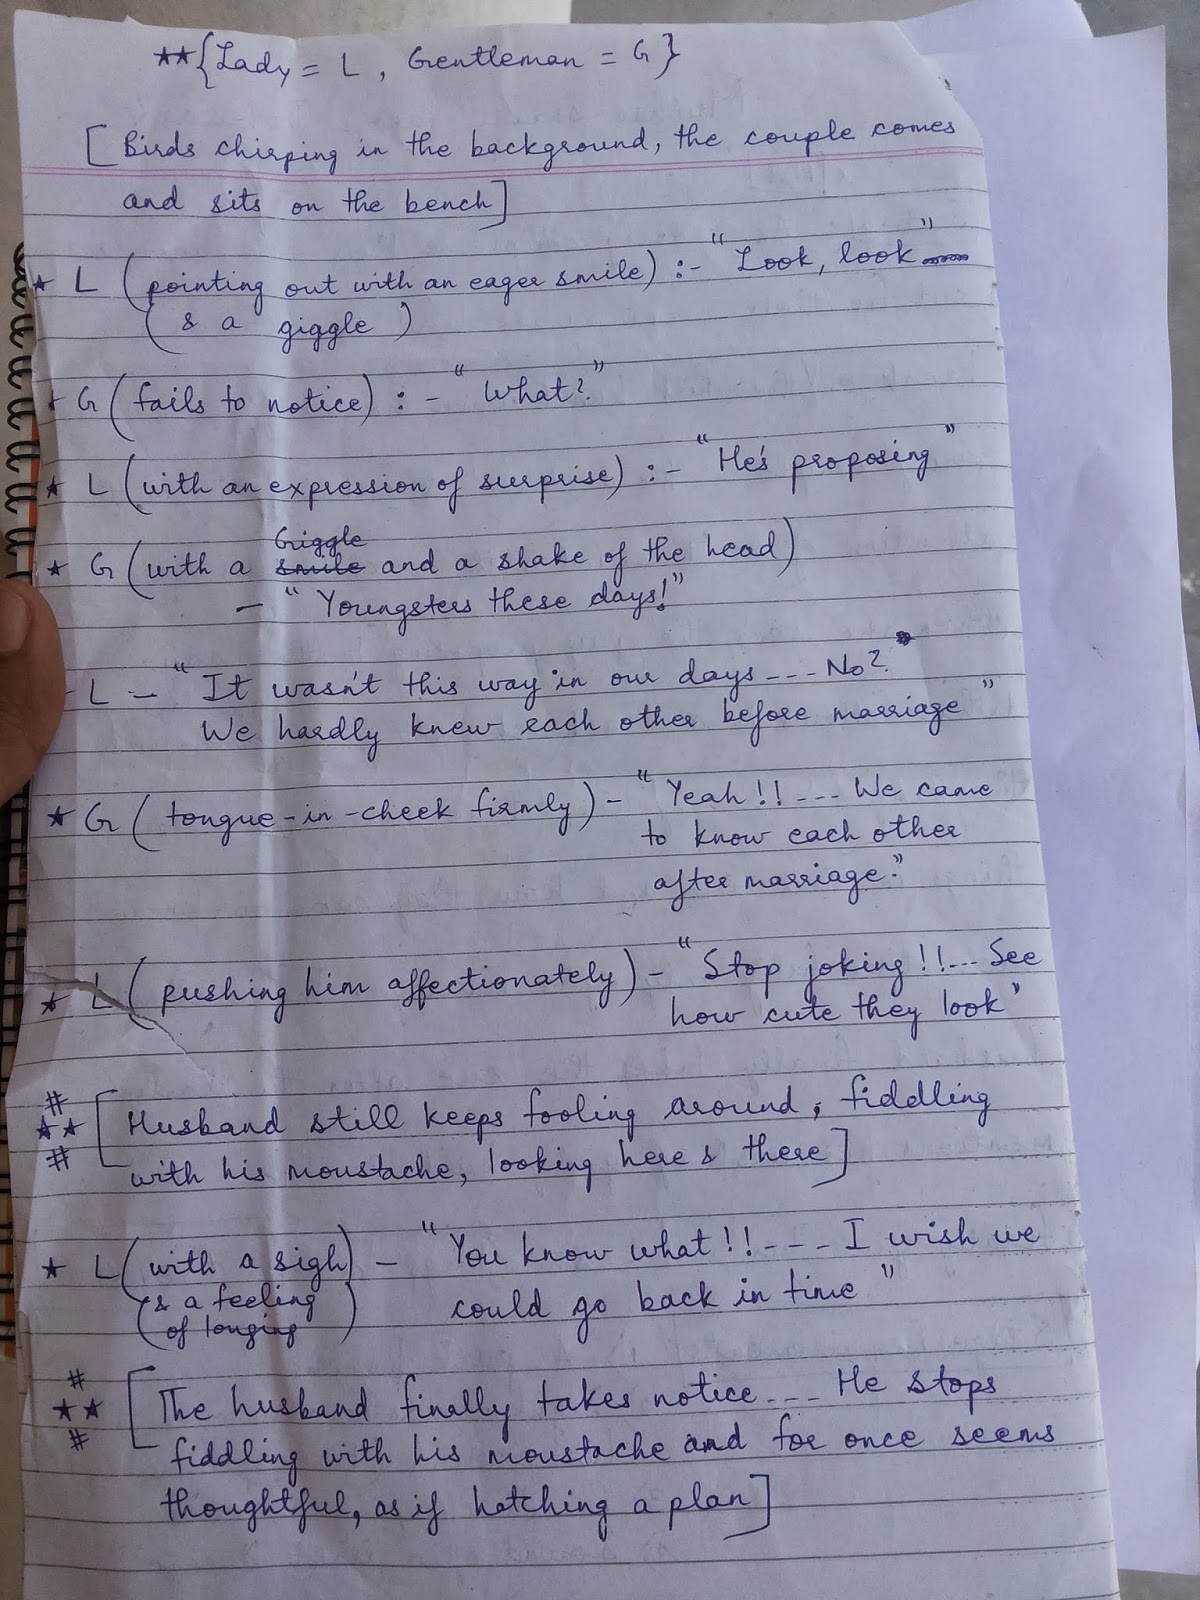 ★★{Lady = L, Gentleman = G}
[Birds chirping in the background, the couple comes
and sits on the bench]
★ L (pointing out with an eager smile) :- "Look, look"
(& a giggle)
★ G (fails to notice) :- "What?"
★ L (with an expression of surprise) :- "He's proposing"
Giggle
★ G (with a smile and a shake of the head)
- "Youngsters these days!"
- L - "It wasn't this way in our days --- No?
We hardly knew each other before marriage"
★ G (tongue-in-cheek firmly) - "Yeah!! --- We came
to know each other
after marriage."
★ L (pushing him affectionately) - "Stop joking!!--- See
how cute they look"
#
★★ [Husband still keeps fooling around, fiddling
#
with his moustache, looking here & there]
★ L (with a sigh) - "You know what!! --- I wish we
(& a feeling
could go back in time"
of longing)
#
★★ [The husband finally takes notice --- He stops
#
fiddling with his moustache and for once seems
thoughtful, as if hatching a plan]